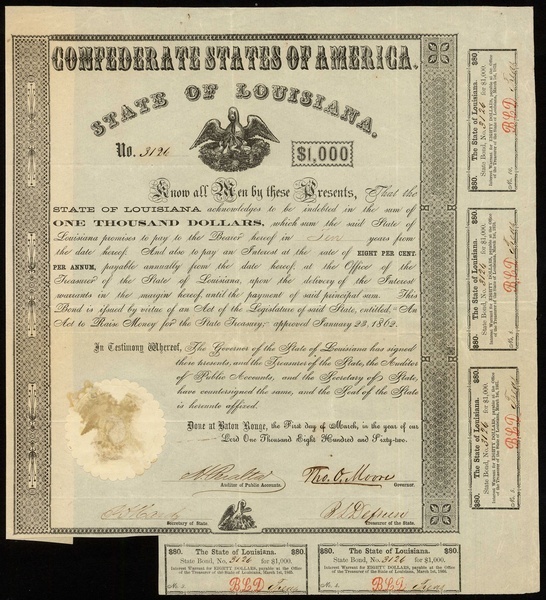 CONFEDERATE STATES OF AMERICA.
STATE OF LOUISIANA.
No. 3126
$1,000
Know all Men by these Presents, That the
STATE OF LOUISIANA acknowledges to be indebted in the sum of
ONE THOUSAND DOLLARS, which sum the said State of
Louisiana promises to pay to the Bearer hereof in Ten years from
the date hereof. And also to pay an Interest at the rate of EIGHT PER CENT.
PER ANNUM, payable annually from the date hereof, at the Office of the
Treasurer of the State of Louisiana, upon the delivery of the Interest
warrants in the margin hereof until the payment of said principal sum. This
Bond is issued by virtue of an Act of the Legislature of said State, entitled, "An
Act to Raise Money for the State Treasury," approved January 23, 1862.
In Testimony Whereof, The Governor of the State of Louisiana has signed
these presents, and the Treasurer of the State, the Auditor
of Public Accounts, and the Secretary of State,
have countersigned the same, and the Seal of the State
is hereunto affixed.
Done at Baton Rouge, the First day of March, in the year of our
Lord One Thousand Eight Hundred and Sixty-two.
Auditor of Public Accounts.
Tho. O. Moore
Governor.
Secretary of State.
Treasurer of the State.
$80. The State of Louisiana. $80.
State Bond, No. 3126 for $1,000.
Interest Warrant for EIGHTY DOLLARS, payable at the Office
of the Treasurer of the State of Louisiana, March 1st,
$80. The State of Louisiana. $80.
State Bond, No. 3126 for $1,000.
Interest Warrant for EIGHTY DOLLARS, payable at the Office
of the Treasurer of the State of Louisiana, March 1st,
$80. The State of Louisiana. $80.
State Bond, No. 3126 for $1,000.
Interest Warrant for EIGHTY DOLLARS, payable at the Office
of the Treasurer of the State of Louisiana, March 1st,
$80. The State of Louisiana. $80.
State Bond, No. 3126 for $1,000.
Interest Warrant for EIGHTY DOLLARS, payable at the Office
of the Treasurer of the State of Louisiana, March 1st,
$80. The State of Louisiana. $80.
State Bond, No. 3126 for $1,000.
Interest Warrant for EIGHTY DOLLARS, payable at the Office
of the Treasurer of the State of Louisiana, March 1st,